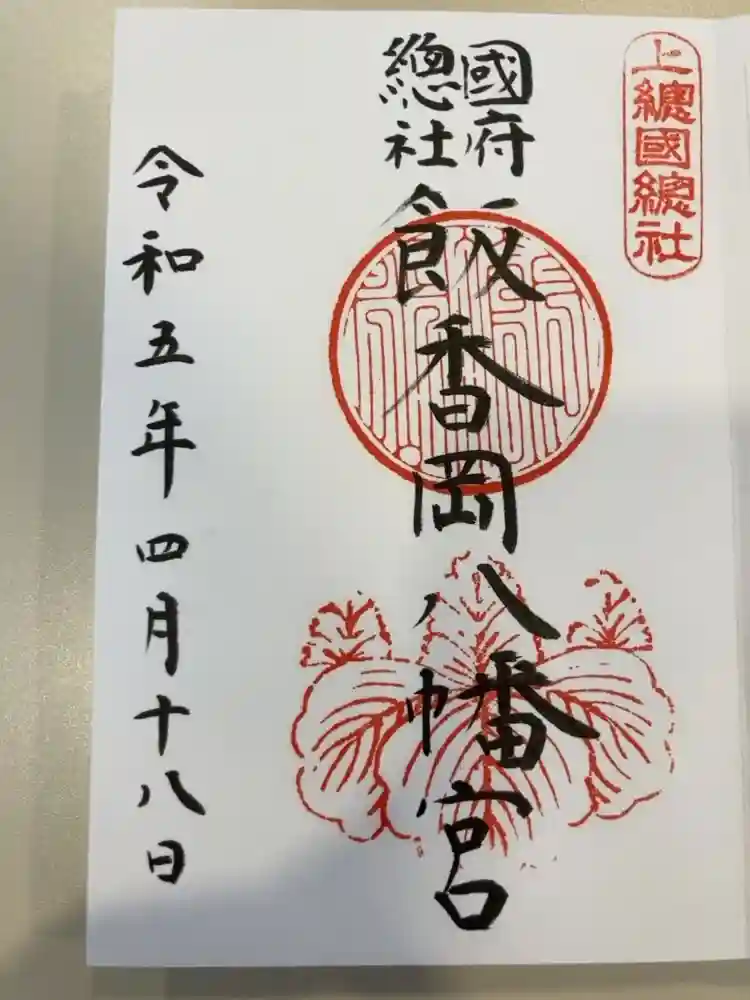 上總國總社
國府
總社
飯香岡八幡宮
令和五年四月十八日